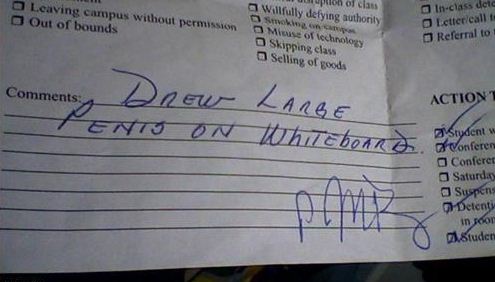 of class
Leaving campus without permission
Out of bounds
Willfully defying authority
Smoking on campus
Misuse of technology
Skipping class
Selling of goods
In-class
Letter/call
Referral to
Comments: DREW LARGE
PENIS ON WHITEBOARD.
ACTION
Student
Conferen
Confer
Saturday
Suspens
Detenti
in room
Studen